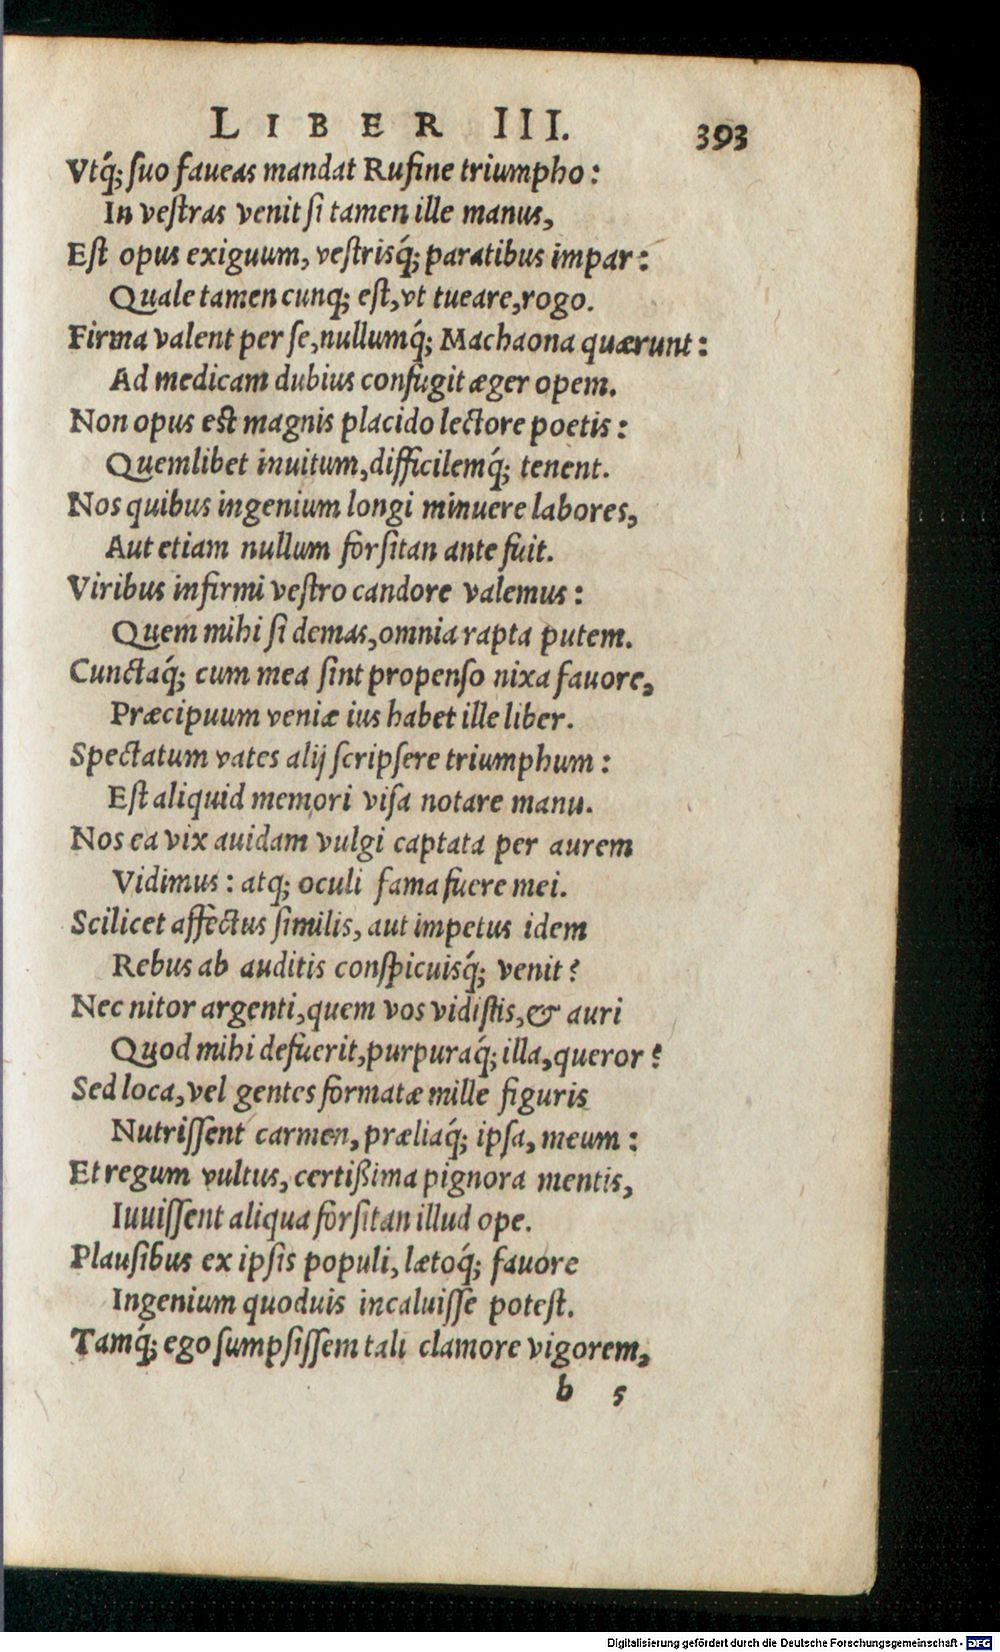 LIBER III. 393
Vtq́; ſuo faueas mandat Rufine triumpho:
In veſtras venit ſi tamen ille manus,
Eſt opus exiguum, veſtrisq́; paratibus impar:
Quale tamen cunq; eſt, vt tueare, rogo.
Firma valent per ſe, nullumq́; Machaona quærunt:
Ad medicam dubius confugit æger opem.
Non opus est magnis placido lectore poetis:
Quemlibet inuitum, difficilemq́; tenent.
Nos quibus ingenium longi minuere labores,
Aut etiam nullum forſitan ante fuit.
Viribus infirmi veſtro candore valemus:
Quem mihi ſi demas, omnia rapta putem.
Cunctaq́; cum mea ſint propenſo nixa fauore,
Præcipuum veniæ ius habet ille liber.
Spectatum vates alij ſcripſere triumphum:
Eſt aliquid memori viſa notare manu.
Nos ea vix auidam vulgi captata per aurem
Vidimus: atq; oculi fama fuere mei.
Scilicet affectus ſimilis, aut impetus idem
Rebus ab auditis conſpicuisq́; venit?
Nec nitor argenti, quem vos vidiſtis, & auri
Quod mihi defuerit, purpuraq́; illa, queror?
Sed loca, vel gentes formatæ mille figuris
Nutriſſent carmen, præliaq́; ipſa, meum:
Et regum vultus, certißima pignora mentis,
Iuuiſſent aliqua forſitan illud ope.
Plauſibus ex ipſis populi, lætoq́; fauore
Ingenium quoduis incaluiſſe poteſt.
Tamq́; ego ſumpſiſſem tali clamore vigorem,
b 5
Digitalisierung gefördert durch die Deutsche Forschungsgemeinschaft - DFG